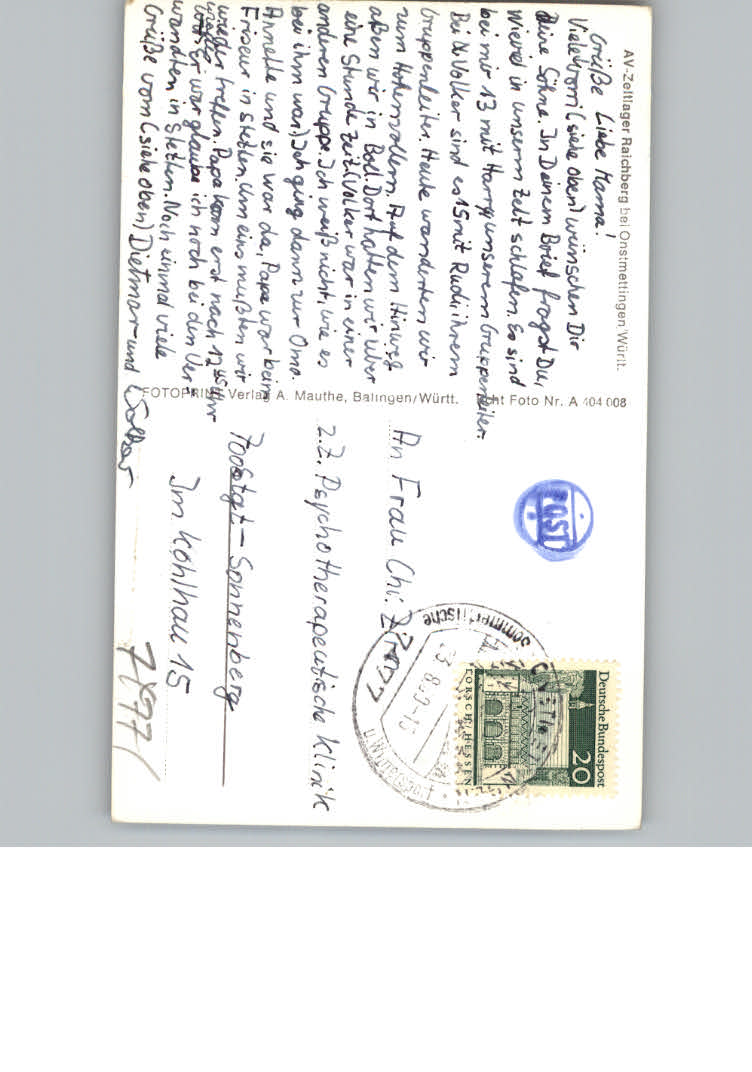 AV-Zeltlager Raichberg bei Onstmettingen Württ.
Grüße Liebe Mama!
Viele vom (siehe oben) wünschen Dir
Deine Söhne. In Deinem Brief fragst Du,
wieviel in unserm Zelt schlafen. Es sind
bei mir 13 mit Harry unserem Gruppenleiter.
Bei N. Volker sind es 15 mit Rudi, ihrem
Gruppenleiter. Heute wanderten wir
zum Hohenzollern. Auf dem Hinweg
aßen wir in Boll. Dort hatten wir über
eine Stunde Zeit. (Volker war in einer
anderen Gruppe. Ich weiß nicht, wie es
bei ihm war.) Ich ging dann zur Oma.
Annelie und sie war da, Papa war beim
Friseur in Stetten. Um eins mußten wir
wieder treffen. Papa kam erst nach 12 45 Uhr
Er war glaube ich noch bei den Ver-
wandten in Stetten. Noch einmal viele
Grüße vom (siehe oben) Dietmar und Volker
FOTOPRINT Verlag A. Mauthe, Balingen/Württ. Echt Foto Nr. A 404 008
POST
Deutsche Bundespost
20
LORSCH/HESSEN
Sommerfrische
u. Wintersport
An Frau Chr.
z.Z. Psychotherapeutische Klinik
7 Stgt-Sonnenberg
Im Kohlhau 15